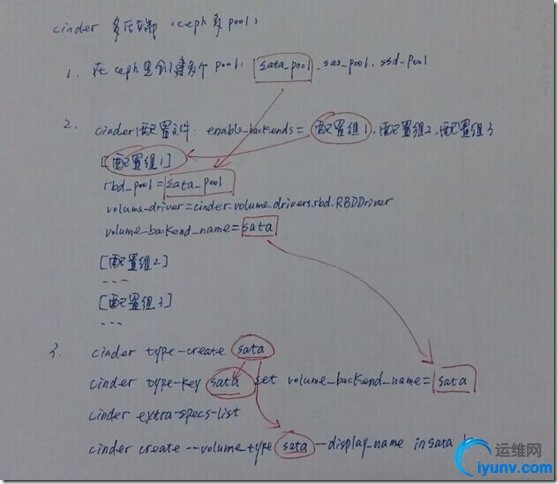 cinder 多后端 (ceph 多 pool)
1. 在 ceph 里创建多个 pool: sata_pool . sas_pool . ssd_pool
2. cinder 配置文件: enable_backends = 配置组1, 配置组2, 配置组3
[配置组1]
rbd_pool = sata_pool
volume_driver = cinder.volume.drivers.rbd.RBDDriver
volume_backend_name = sata
[配置组2]
---
[配置组3]
---
3. cinder type-create sata
cinder type-key sata set volume_backend_name = sata
cinder extra-specs-list
cinder create --volume_type sata --display_name insata 1
运维网
iyunv.com